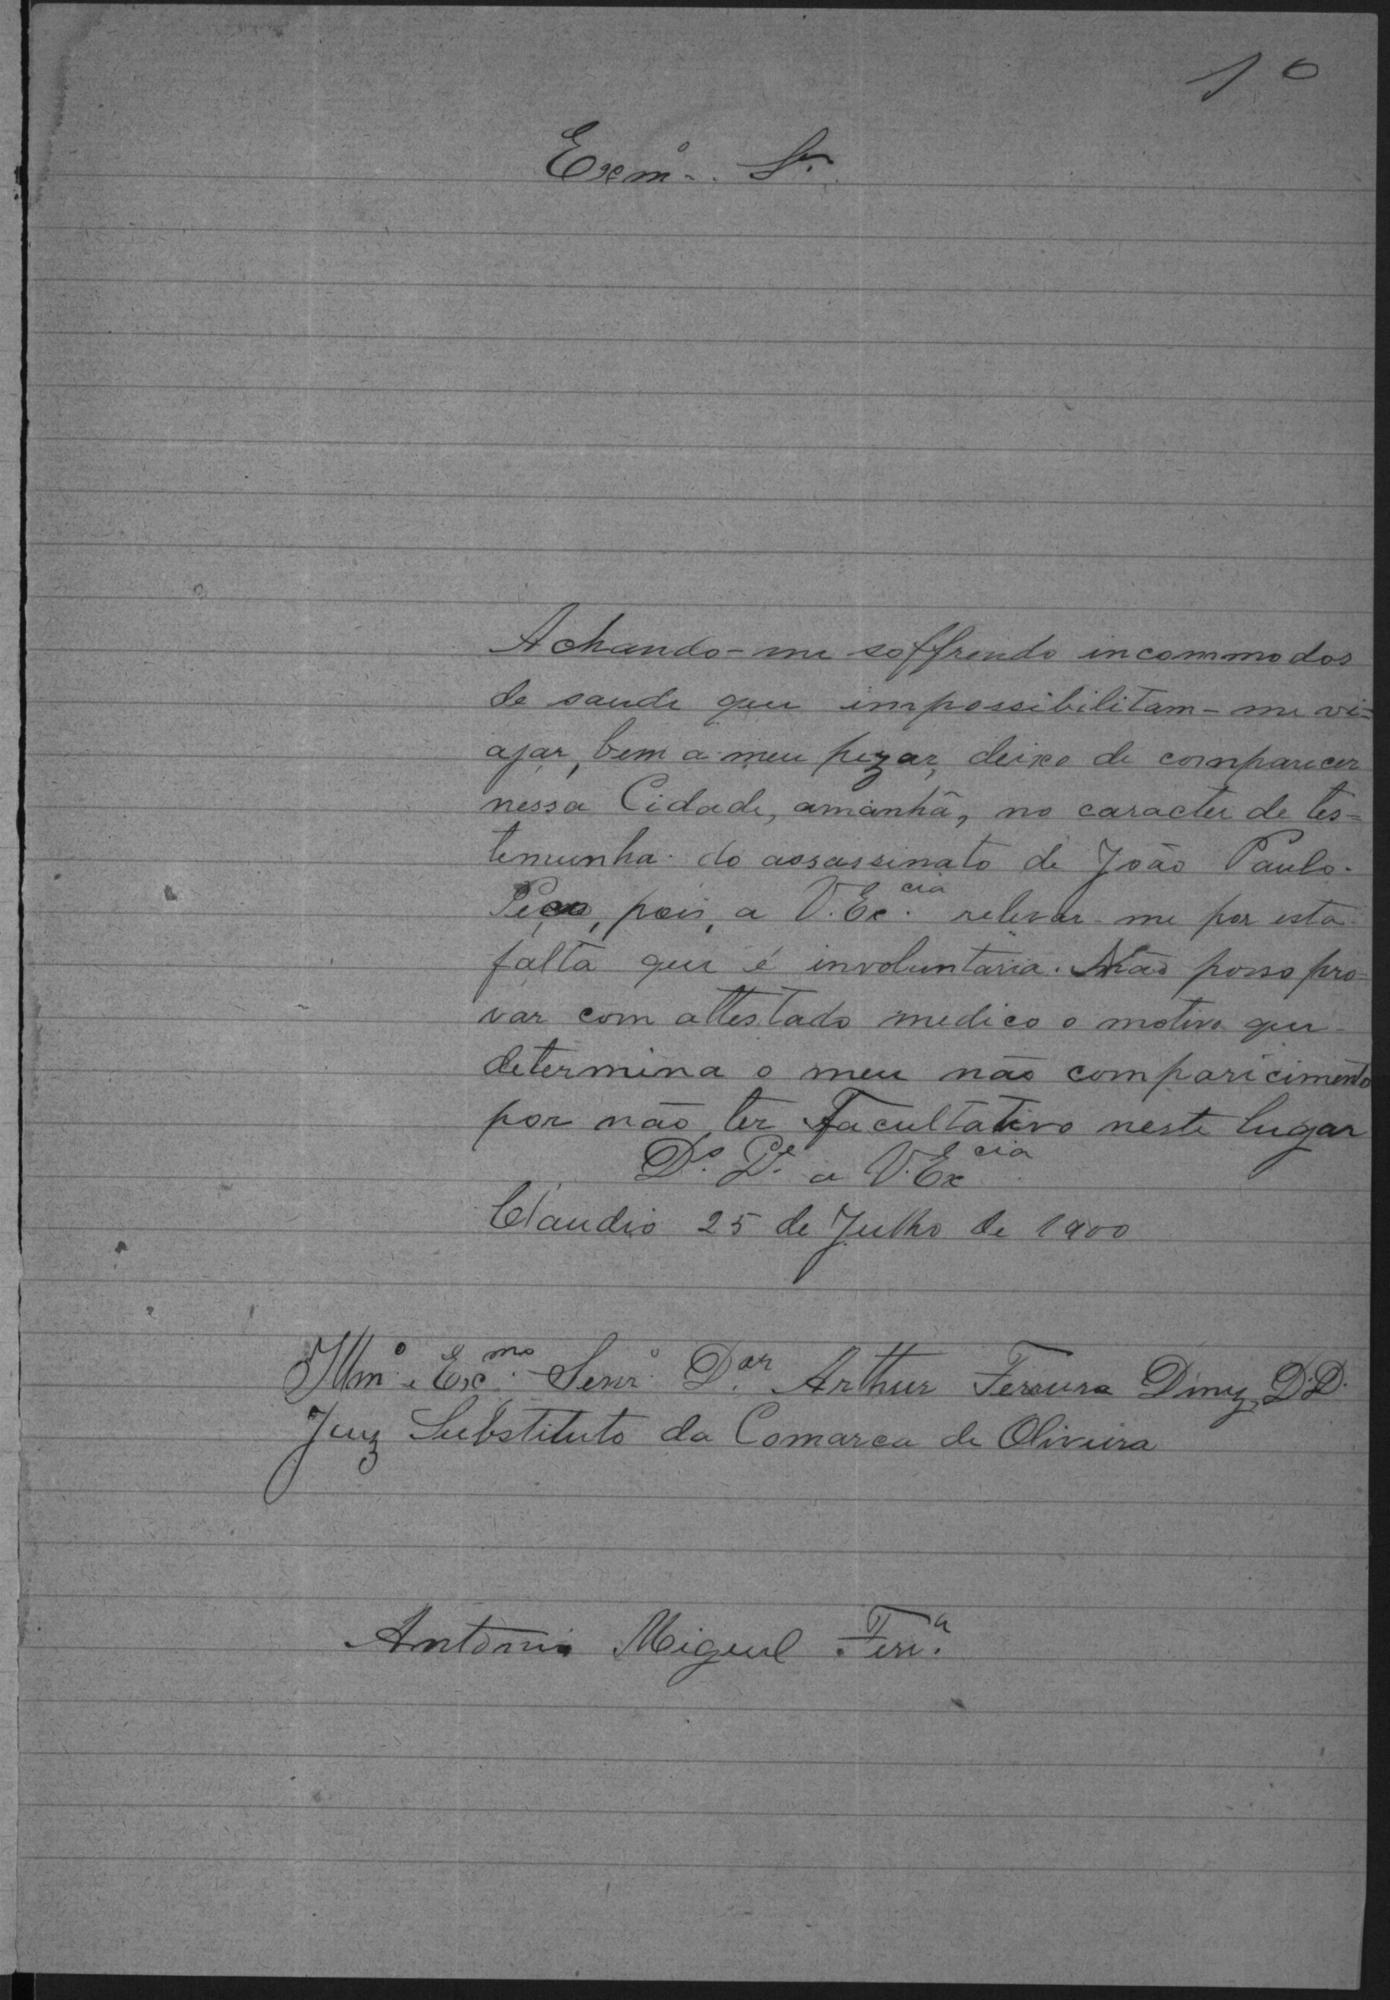 10
Exmº. Sr.
Achando-me soffrendo incommodos
de saude que impossibilitam-me vi=
ajar, bem a meu pezar, deixo de comparecer
nessa Cidade, amanhã, no caracter de tes=
temunha do assassinato de João Paulo.
Peço, pois, a V. Ex.cia relevar-me por esta
falta que é involuntaria. Não posso pro-
var com attestado medico o motivo que
determina o meu não comparicimento
por não ter Facultativo neste lugar
Ds. Ge. a V. Excia
Claudio 25 de Julho de 1900
Illmº. Exmo. Senrº. D.or Arthur Ferreira Diniz, D.D.
Juiz Substituto da Comarca de Oliveira
Antonio Miguel Ferrª.